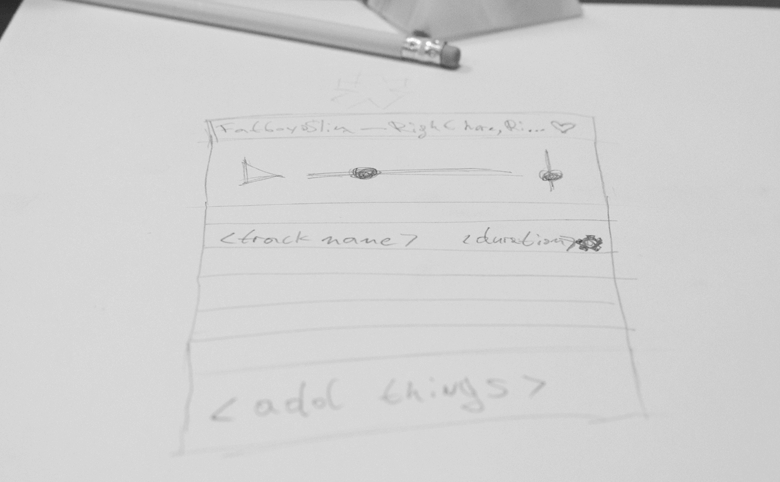 FatBoySlim — Right here, Ri...
<track name> <duration>
<add things>